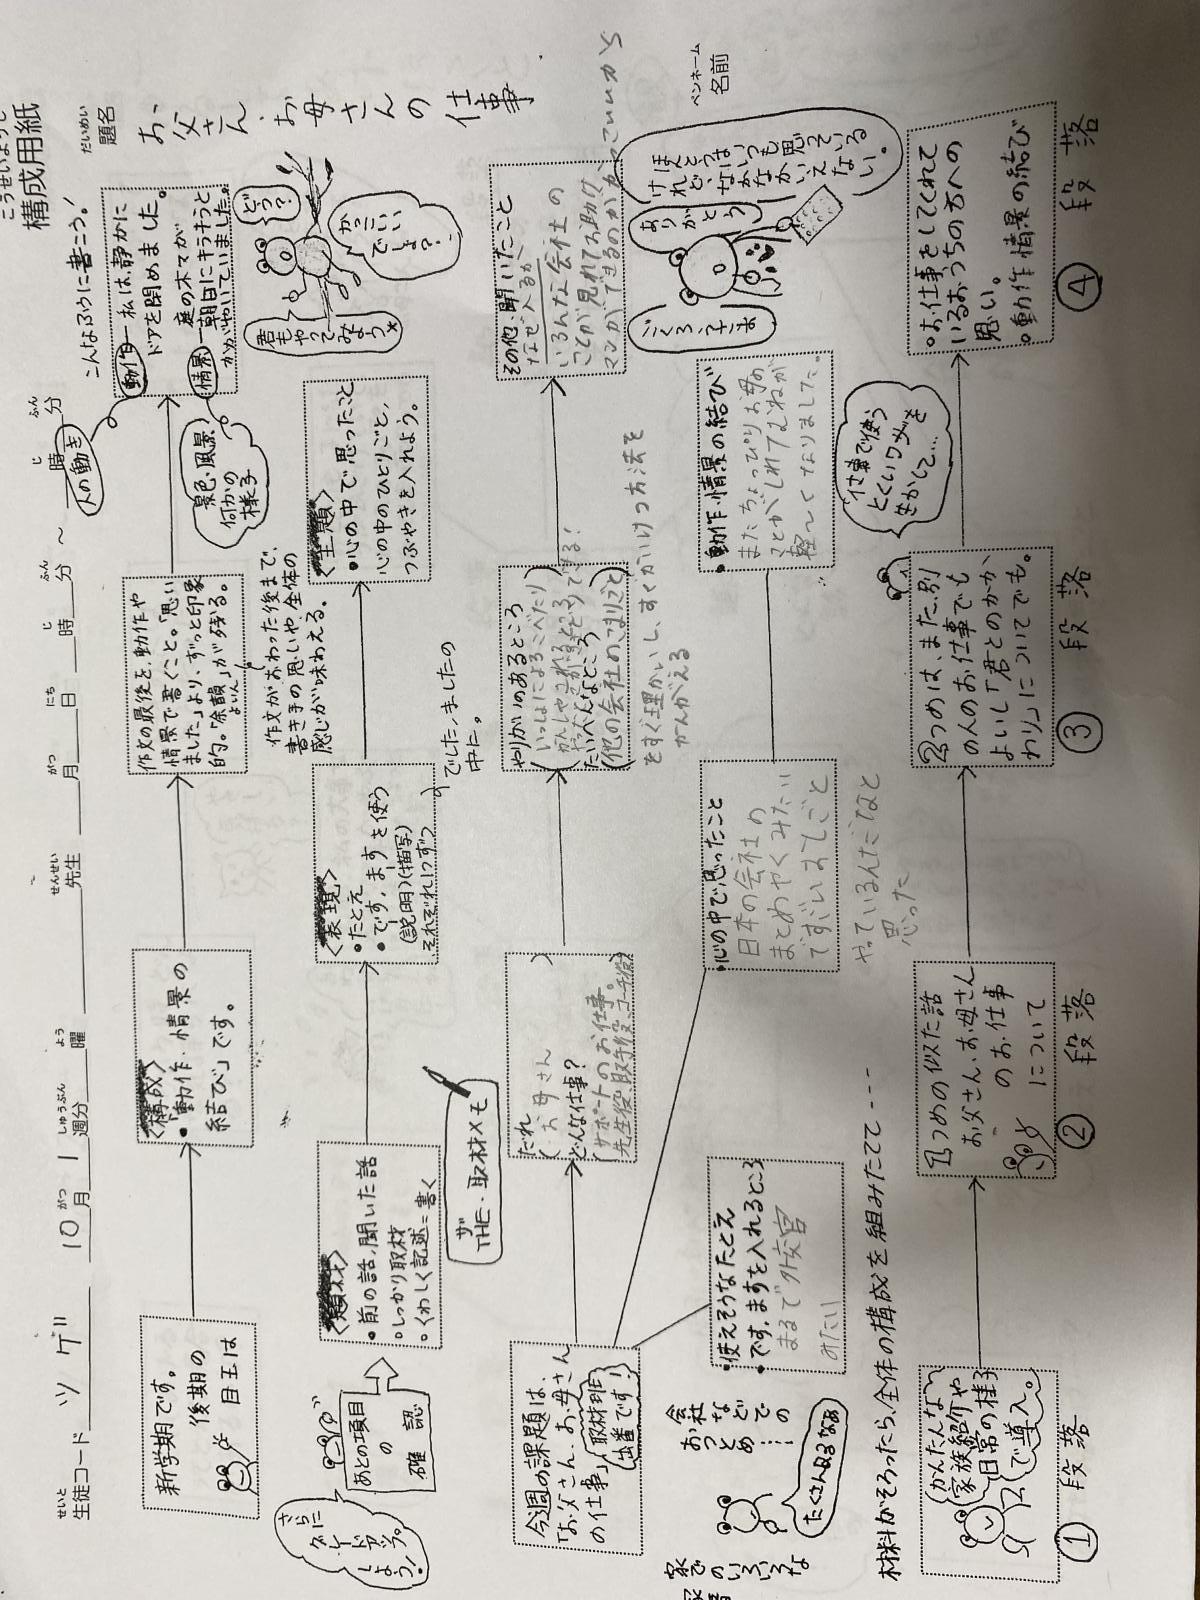 こうせいようし
構成用紙
せいと
生徒コード ツゲ 10月 1週分 曜 先生 月 日 時 分 ～ 時 分
がつ しゅうぶん よう せんせい がつ にち じ ふん じ ふん
だいめい
題名
お父さん・お母さんの仕事
ペンネーム
名前
新学期です。
後期の
目玉は
〈構成〉
・「動作・情景の
結び」です。
作文の最後を、動作や
情景で書くこと。「思い
ました」より、ずっと印象
的。「余韻」が残る。
よいん
作文がおわった後まで、
書き手の思いや、全体の
感じが味わえる。
こんなふうに書こう！
人の動き
動作―私は、静かに
ドアを閉めました。
庭の木々が
情景―朝日にキラキラと
かがやいていました。
景色、風景
何かの
様子
どう？
かっこいい
でしょ？
君も
やってみよう
さらに
グレードアップ
しよう！
あとの項目
の
確認
〈題材〉
・前の話、聞いた話
・しっかり取材
・くわしく記述＝書く
〈表現〉
・たとえ
・です、ますを使う
(説明)(描写)
それぞれ1つずつ
でした、ましたの
中に。
〈主題〉
・心の中で思ったこと
心の中のひとりごと、
つぶやきを入れよう。
ザ
THE・取材メモ
今週の課題は、
「お父さん、お母さん
の仕事」
取材班
出番です！
だれ
(お母さん)
どんな仕事？
サポートのお仕事。
先生役、助手役、コーチ役
やりがいのあるところ
たいへんなところ
(他の会社のこまりごと)
をすぐ理かいし、すぐかいけつ方法を
かんがえる
その他 聞いたこと
なぜ入るか
いろんな会社の
ことが見れてお助け
マンができるのがかっこいいから
会社
などでの
おつとめ…
家での
いろいろな
たくさんあるなぁ
・使えそうなたとえ
・です、ますを入れるところ
まるで外交官
みたい
・心の中で思ったこと
日本の会社の
まとめやくみたい
ですごいおしごと
やっているんだなと
思った
・動作、情景の結び
またちょっぴりお母の
ことがしれてむねが
軽〜くなりました。
ごくろうさま
ありがとう
ほんとうはいつも思っている
けれど、なかなかいえない。
材料がそろったら、全体の構成を組みたてて----
かんたんな
家族紹介や
日常の様子
で導入。
①段落
1つめの似た話
お父さん、お母さん
のお仕事
について
②段落
2つめは、また、別
の人のお仕事でも
よいし「君とのかか
わり」についてでも。
③段落
仕事で使う
とくいワザを
生かして…
・お仕事をしてくれて
いるおうちの方への
思い。
・動作、情景の結び
④段落